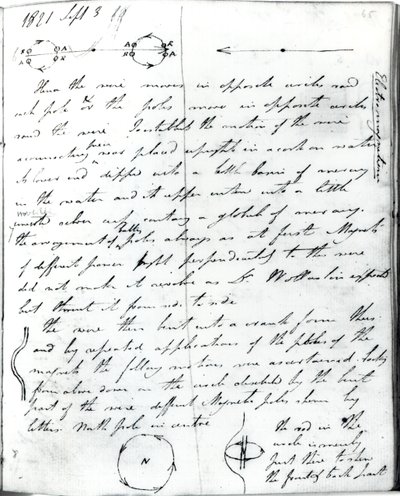 1821 Sept 3
65
R A A R
A R R
Electromagnetism
Hence the wire moves in opposite circles round
each pole & or the poles move in opposite circles
round the wire. To establish the motion of the wire
a connecting piece was placed upright in a cork on water
its lower end dipped into a little basin of mercury
in the water and its upper into a little
inverted silver cup containing a globule of mercury.
The arrangement of the poles always as at first. Magnets
of different power brought perpendicular to this wire
did not make it revolve as Dr. Wollaston expected
but thrust it from side to side
The wire then bent into a crank form thus
and by repeated applications of the poles of the
magnets the following motions were ascertained looking
from above down on the circle described by the bent
part of the wire different Magnetic poles shewn by
letters North pole in centre
N
The rod in the
circle is merely
put there to shew
the front & back part